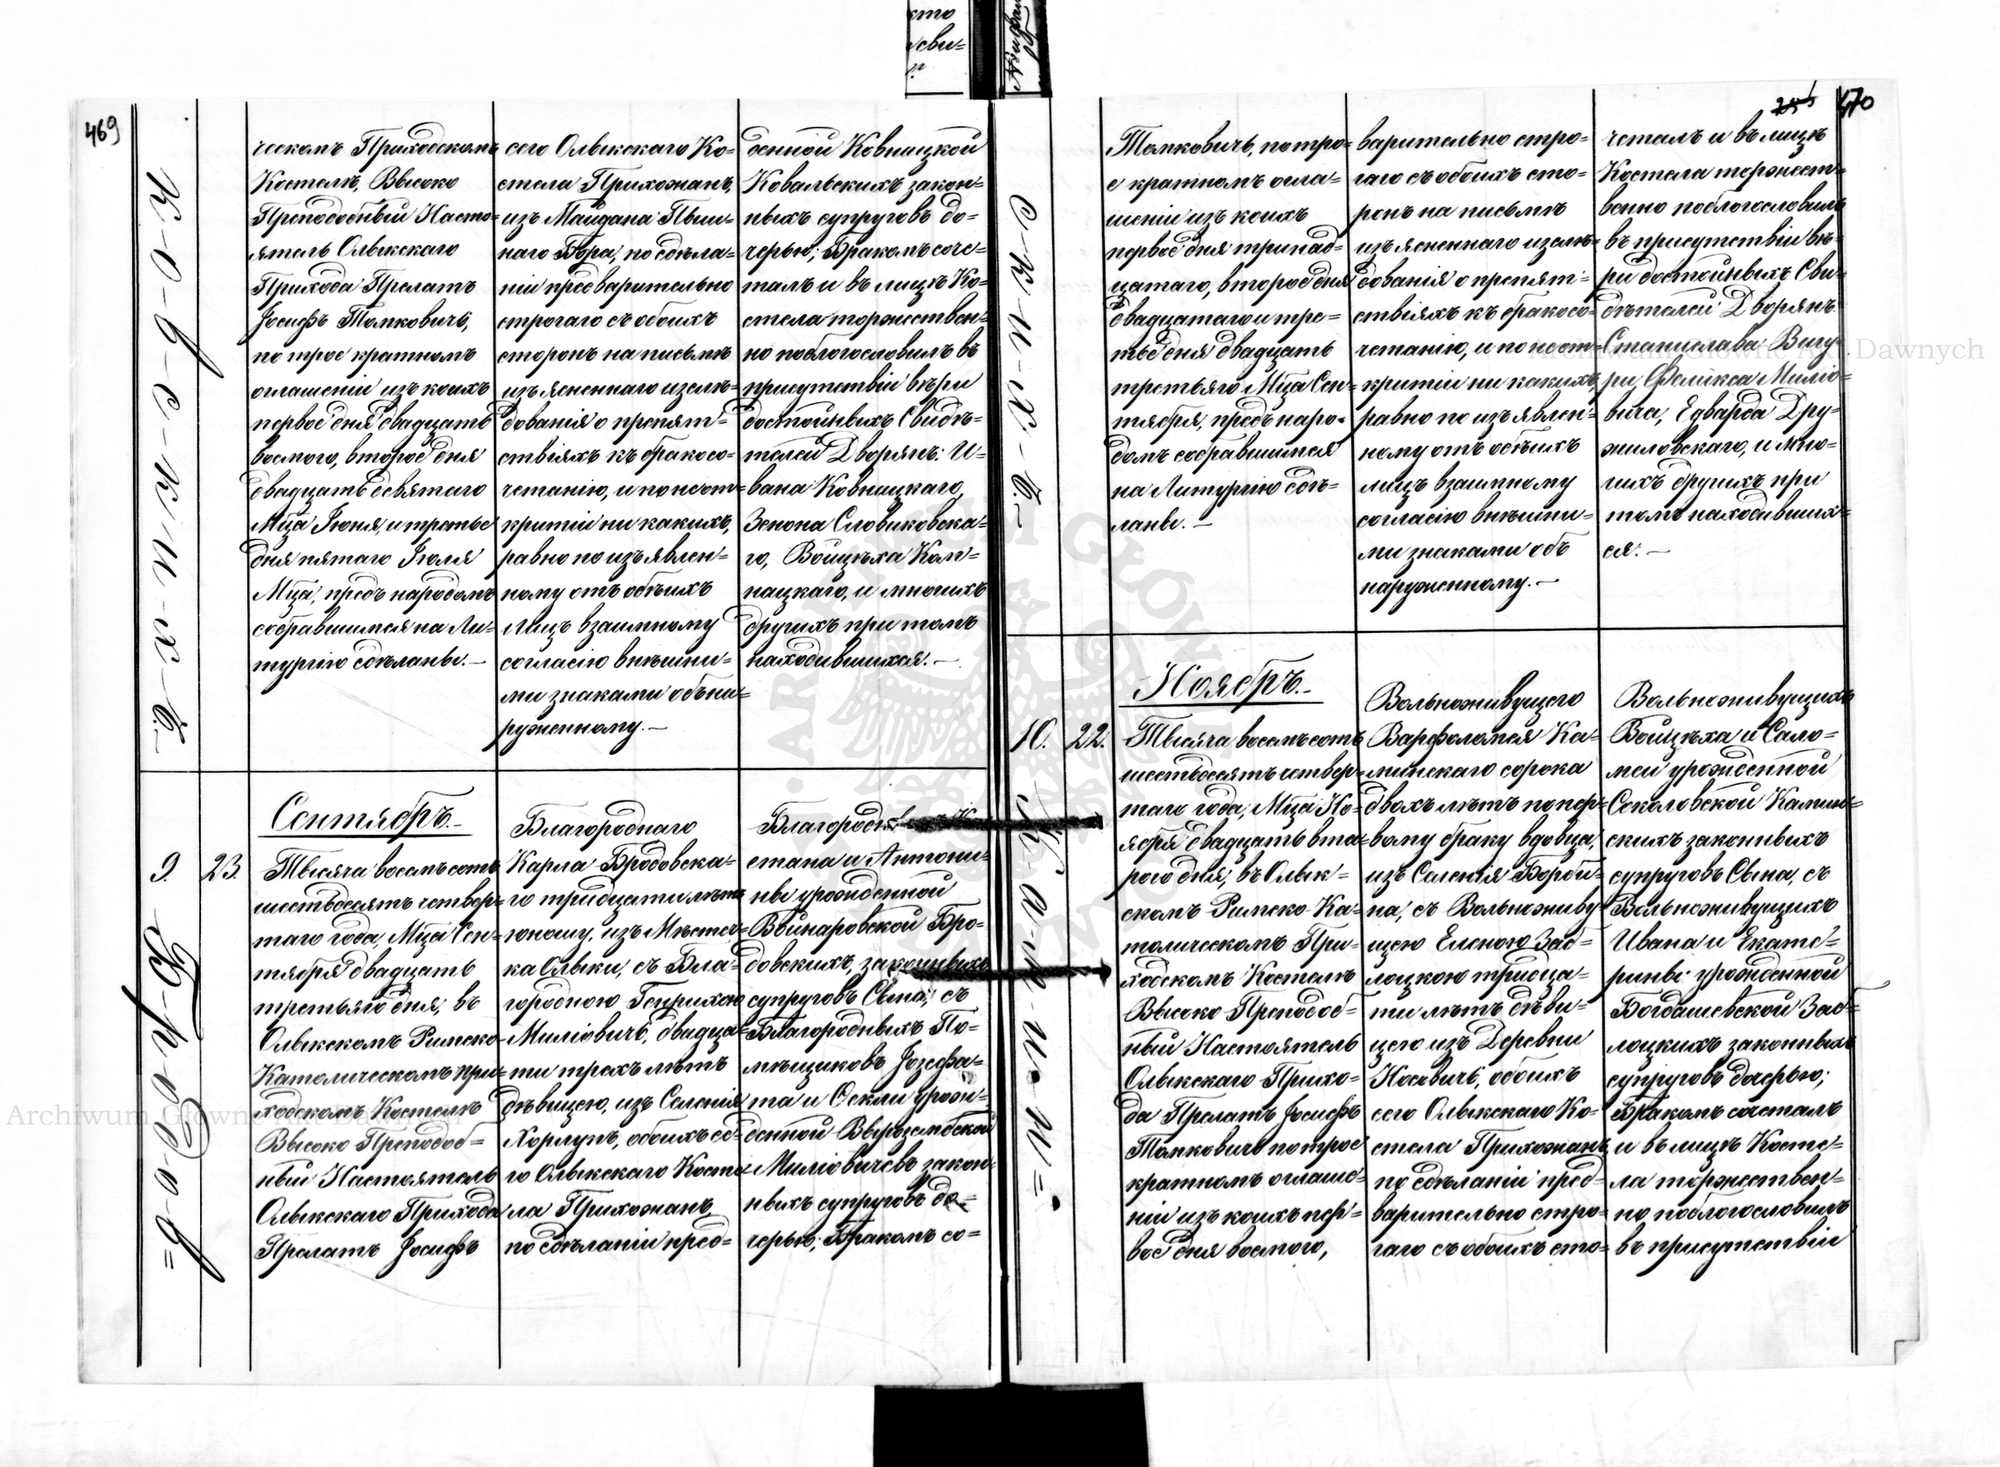 469
ческомъ Приходскомъ
Костелѣ, Высоко
Преподобный Насто-
ятель Олыкскаго
Прихода Прелатъ
Іосифъ Томковичъ,
по трое кратномъ
оглашеніи изъ коихъ
первое дня двадцать
восмого, второе дня
двадцать девятаго
Мца Іюня, и третье
дня пятаго Іюля
Мца, предъ народомъ
собравшимся на Ли-
тургію сдѣланы.—
сего Олыкскаго Ко-
стела Прихожанъ,
изъ Майдана Пьян-
наго Бора, по сдѣла-
ніи предварительно
строгаго съ обоихъ
сторонъ на письмѣ
изъясненнаго изслѣ-
дованія о препят-
ствіяхъ къ бракосо-
четанію, и по неот-
крытіи ни какихъ,
равно по изъявлен-
ному отъ обѣихъ
лицъ взаимному
согласію внѣшни-
ми знаками обна-
руженному.—
денной Ковницкой
Ковальскихъ закон-
ныхъ супруговъ до-
черью; Бракомъ соче-
талъ и въ лицѣ Ко-
стела торжествен-
но поблогословилъ въ
присутствіи вѣри
достойныхъ Свидѣ-
телей Дворянъ: И-
вана Ковницкаго,
Зенона Словиковска-
го, Войцѣха Кол-
нацкаго, и многихъ
другихъ при томъ
находившихся.—
9.
23.
Сентябрь.—
Тысяча восемъсотъ
шестьдесятъ четвер-
таго года, Мца Сен-
тября двадцать
третьяго дня, въ
Олыкскомъ Римско-
Католическомъ При-
ходскомъ Костелѣ
Высоко Преподоб-
ный Настоятель
Олыкскаго Прихода
Прелатъ Іосифъ
Благороднаго
Карла Бродовска-
го тридцати лѣтъ
юношу, изъ Мѣстеч-
ка Олыки, съ Бла-
городною Генрихою
Миліовичъ, двадца-
ти трехъ лѣтъ
дѣвицею, изъ Селенія
Хорлупъ, обоихъ се-
го Олыкскаго Косте-
ла Прихожанъ,
по сдѣланіи пред-
стана и Антони-
ны урожденной
Войнаровской Бро-
довскихъ, законныхъ
супруговъ Сына; съ
Благородныхъ По-
мѣщиковъ Іозефа-
та и Оекли урож-
денной Вержбовской
Миліовичевъ закон-
ныхъ супруговъ до-
черью; Бракомъ со-
470
Томковичъ, потро-
е кратномъ огла-
шеніи изъ коихъ
первое дня тринад-
цатаго, второе дня
двадцатаго и тре-
тье дня двадцать
третьяго Мца Сен-
тября, предъ наро-
домъ собравшимся
на Литургію сдѣ-
ланы.—
варительно стро-
гаго съ обоихъ сто-
ронъ на письмѣ
изъясненнаго изслѣ-
дованія о препят-
ствіяхъ къ бракосо-
четанію, и по неот-
крытіи ни какихъ,
равно по изъявлен-
ному отъ обѣихъ
лицъ взаимному
согласію внѣшни-
ми знаками об-
наруженному.—
четалъ и въ лицѣ
Костела торжест-
венно поблогословилъ
въ присутствіи вѣ-
ри достойныхъ Сви-
дѣтелей Дворянъ:
Станислава Визу-
ри, Феликса Миліо-
вича, Едварда Дру-
жиловскаго, и мно-
гихъ другихъ при
томъ находивших-
ся.—
10.
22.
Ноябрь.—
Тысяча восемъсотъ
шестьдесятъ четвер-
таго года, Мца Но-
ября двадцать вто-
рого дня, въ Олык-
скомъ Римско Ка-
толическомъ При-
ходскомъ Костелѣ
Высоко Преподоб-
ный Настоятель
Олыкскаго Прихо-
да Прелатъ Іосифъ
Томковичъ по трое
кратномъ оглаше-
ніи изъ коихъ пер-
вое дня восмого,
Вольноживущего
Варфоломея Ка-
минскаго сорока
двохъ лѣтъ по пер-
вому браку вдовца,
изъ Селенія Борби-
на, съ Вольноживу-
щею Еленою Заб-
лоцкою тридца-
ти лѣтъ дѣви-
цею изъ Деревни
Носовичъ, обоихъ
сего Олыкскаго Ко-
стела Прихожанъ,
по сдѣланіи пред-
варительно стро-
гаго съ обоихъ сто-
Вольноживущихъ
Войцѣха и Сало-
меи урожденной
Соколовской Камин-
скихъ законныхъ
супруговъ Сына, съ
Вольноживущихъ
Ивана и Екате-
рины урожденной
Богдашевской Заб-
лоцкихъ законныхъ
супруговъ дочерью;
Бракомъ сочеталъ
и въ лицѣ Косте-
ла торжествен-
но поблогословилъ
въ присутствіи
Archiwum Główne Akt Dawnych